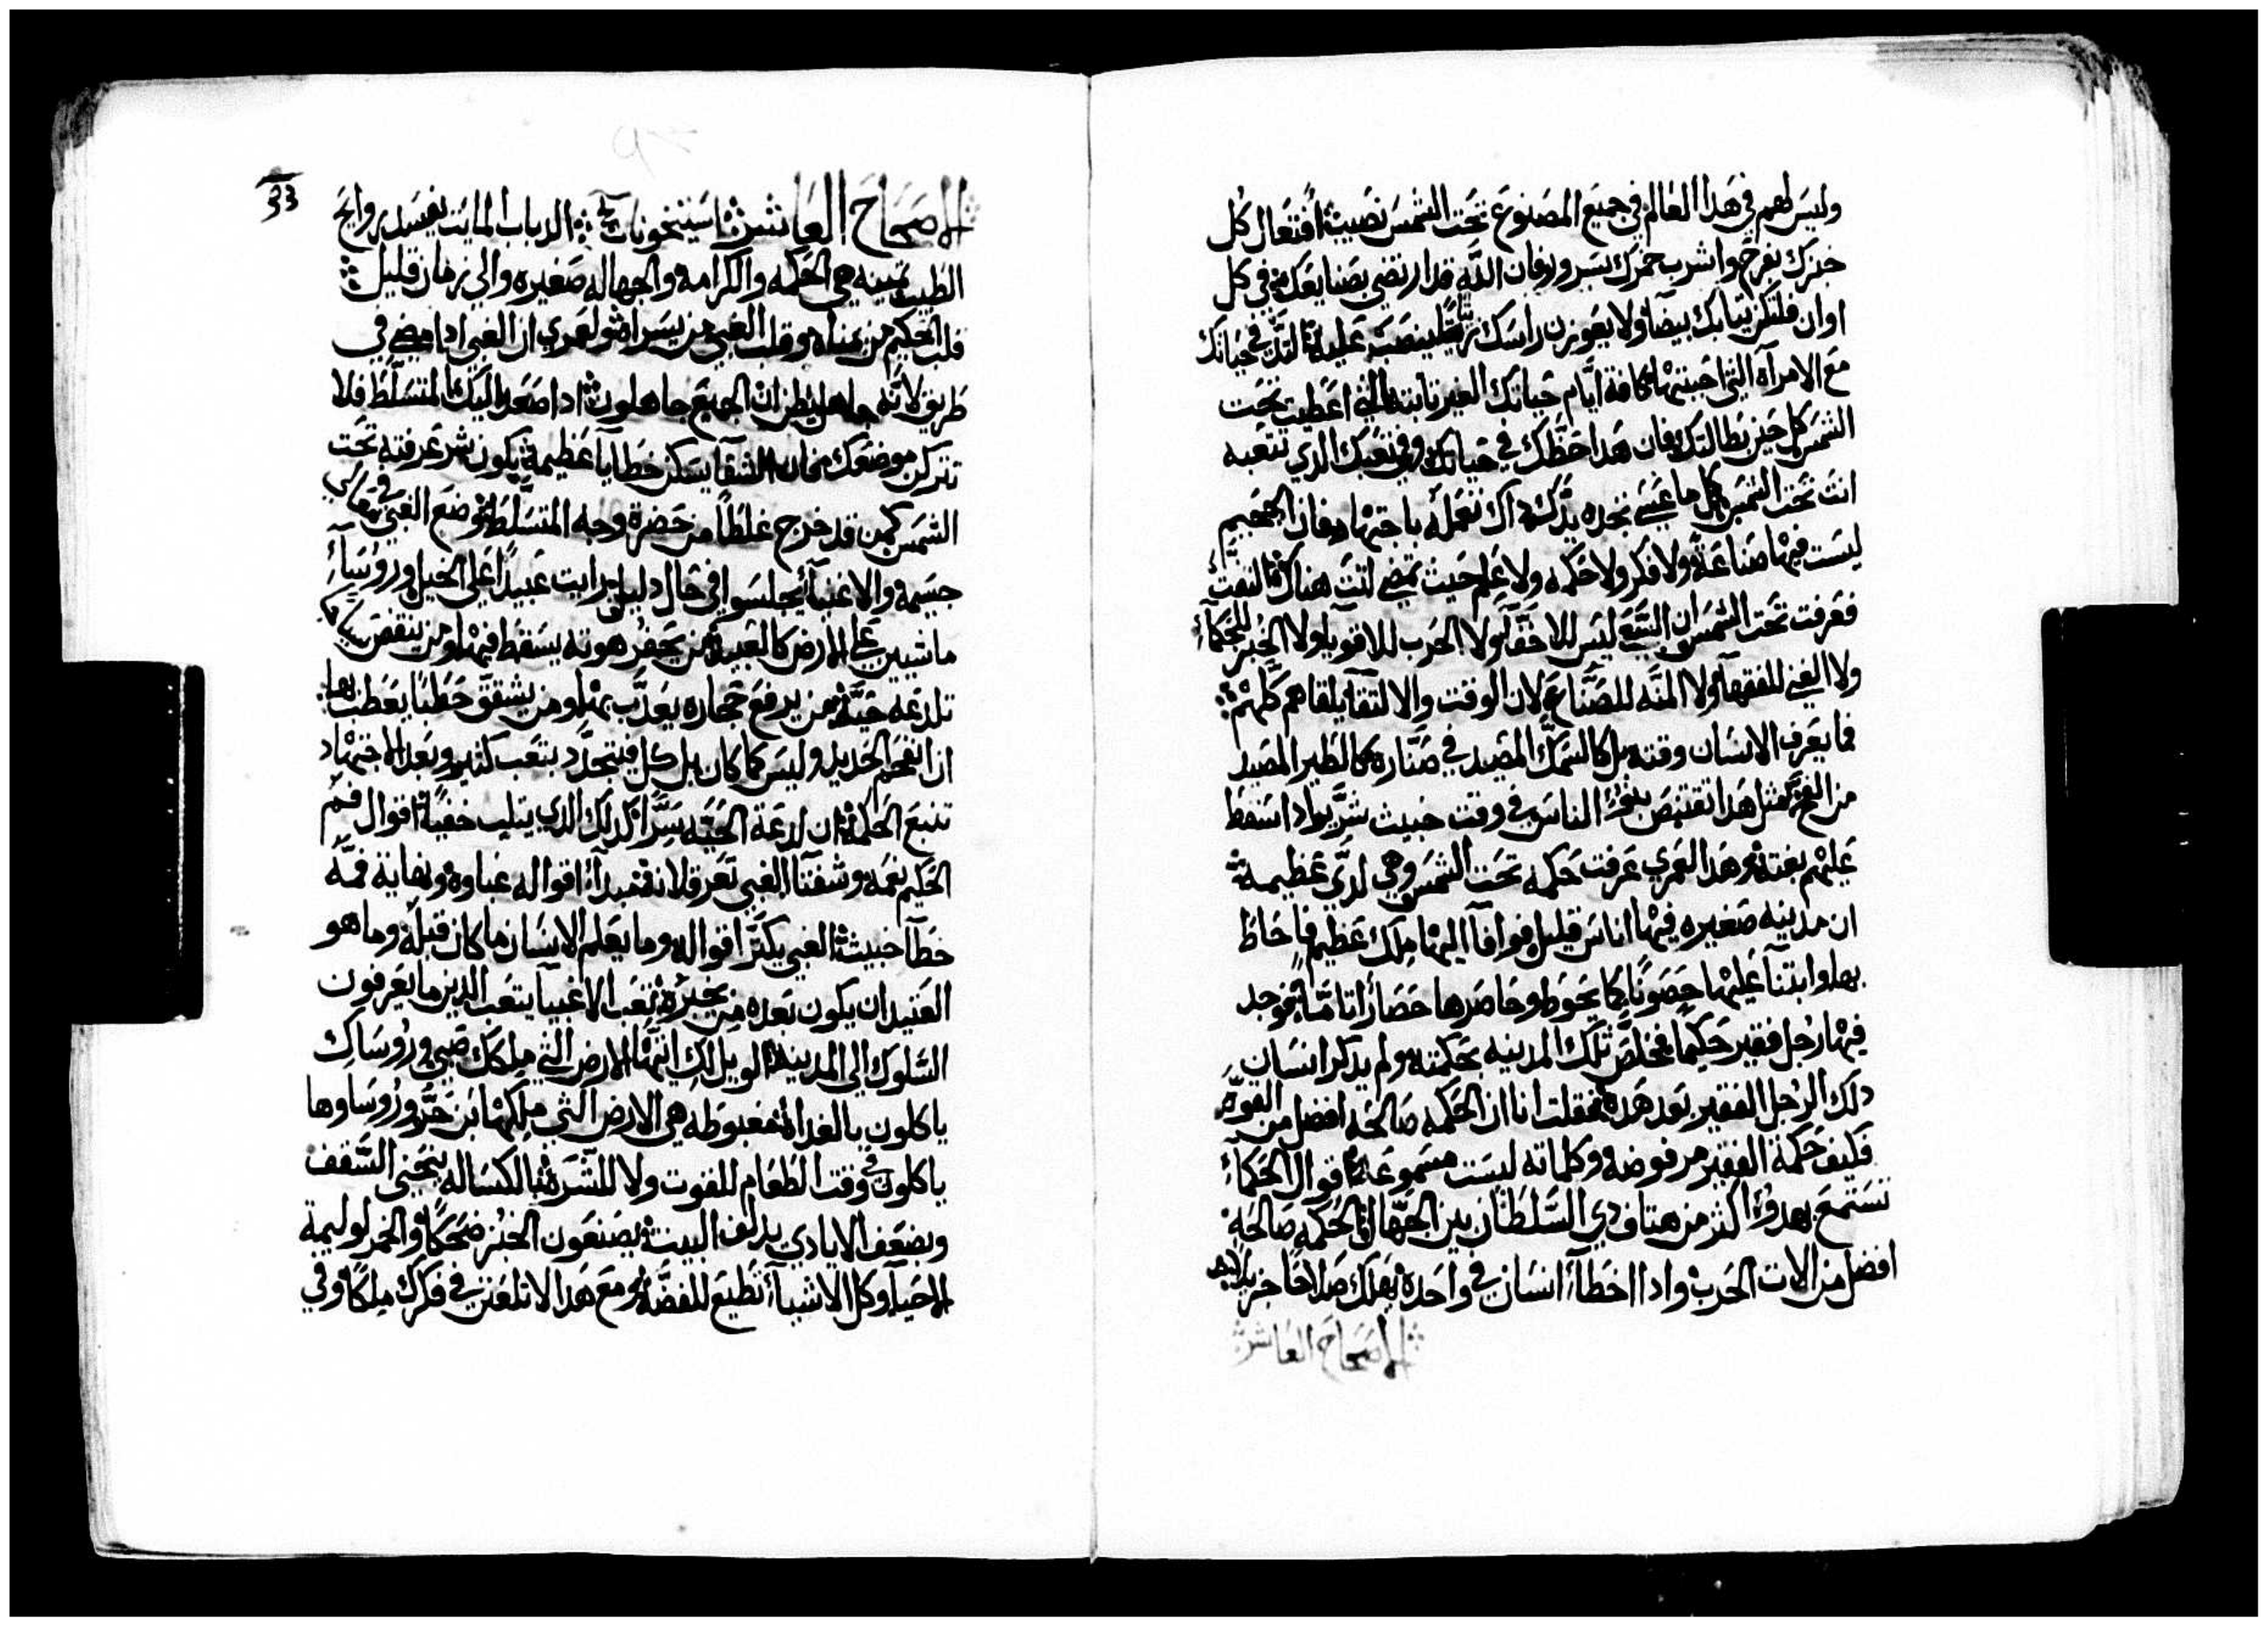 وليس لهم في هدا العالم في جميع المصنوع تحت الشمس نصيب افتعال كل
خبزك بفرح واشرب خمرك بسرور فان الله قد ارتضي بصنايعك في كل
اوان فلتكن تيابك بيضا ولا يعوزن راسك زيتا لينصب عليه التد في حياتك
مع الامراه التي احببتها كافة ايام حياتك الغير تابته التي اعطيت تحت
الشمس كل حين بطالتك فان هدا حظك في حياتك وفي تعبك الدي تتعبه
انت تحت الشمس كل ما عسي تجده يدك اك تعمله باجتهاد فان الجحيم
ليست فيها صناعة ولا فكر ولا حكمه ولا علم حيث تمضي انت هناك التفت
فعرفت تحت الشمس ان التبع ليس للاخفا ولا الحرب للاقويا ولا الخبز للحكما
ولا الغني للفقها ولا المنه للصناع لان الوقت والالتقا يلقاهم كلهم
فما يعرف الانسان وقته بل كالسمك المصيد في صناره كالطير المصيد
من الفخ متل هدا تقتنص بنوا الناس في وقت خبيث شرير ادا سقط
عليهم بغتة وهدا لعمري عرفت حكمه تحت الشمس وهي لدي عظيمة
ان مدينه صغيره فيها اناس قليل فوافا اليها ملك عظيم فاحاط
بها وابتنا عليها حصونا كما يحوط وحاصرها حصارا تاما فوجد
فيها رجل فقير حكيما فخلص تلك المدينه بحكمته ولم يدكر انسان
دلك الرجل الفقير بعد هده فقلت انا ان الحكمه صالحه افضل من القوه
فكيف حكمة الفقير مرفوضه وكلماته ليست مسموعة اقوال الحكما
تستمع بهدوء اكثر من هتاف دي السلطان بين الجهال الحكمه صالحه
افضل من الات الحرب وادا اخطا انسان في واحدة يهلك صلاحا جزيلا
الاصحاح العاشر
33
الاصحاح العاشر الدباب المايت يفسد روايح
الطيب تمينه هي الحكمه والكرامه والجهاله صغيره والي زمان قليل
قلب الحكيم من يمناه وقلب الغبي من يسراه ولعمري ان الغبي ادا مضي في
طريق لانه جاهل يظن ان الجميع جاهلون ادا صعد اليك المتسلط فلا
تتركن موضعك فان الشفا يسكن خطايا عظيمة يكون شر عرفته تحت
الشمس كمن قد خرج غلطا من حضرة وجه المتسلط توضع الغبي في معالي
جسيمه والاغنيا يجلسوا في حال دليل رايت عبيدا علي الخيل وروسا
ماشيين علي الارض كالعبيد من يحفر هوته يسقط فيها ومن ينقض سياجا
تلدغه حية من يرفع حجاره يعدب بها ومن يشقق حطبا يعطب بها
ان انفحم الحديد وليس كما كان بل كل فيتحدد بتعب كثير وبعد الاجتهاد
تتبع الحكمة ان لدغة الحيه سرا كدلك الدي يتلب خفية اقوال فم
الحكيم نعمه وشفتا الغبي تغرقان ابتدا اقواله غباوة ونهاية فمه
خطا خبيثة الغبي يكتر اقواله وما يعلم الانسان ما كان قبله وما هو
العتيد ان يكون بعده من يخبره تعب الاغبيا يتعب الدين ما يعرفون
السلوك الي المدينه الويل لك ايتها الارض التي ملكك صبي وروساك
ياكلون بالغداه مغبوطه هي الارض التي ملكها ابن حر وروساوها
ياكلون في وقت الطعام للقوت ولا للشره بالكساله ينحني السقف
وبضعف الايادي يدلف البيت يصنعون الخبز ضحكا والخمر لوليمة
الاحيا وكل الاشيا تطيع للفضه ومع هدا لا تلعن في فكرك ملكا وفي